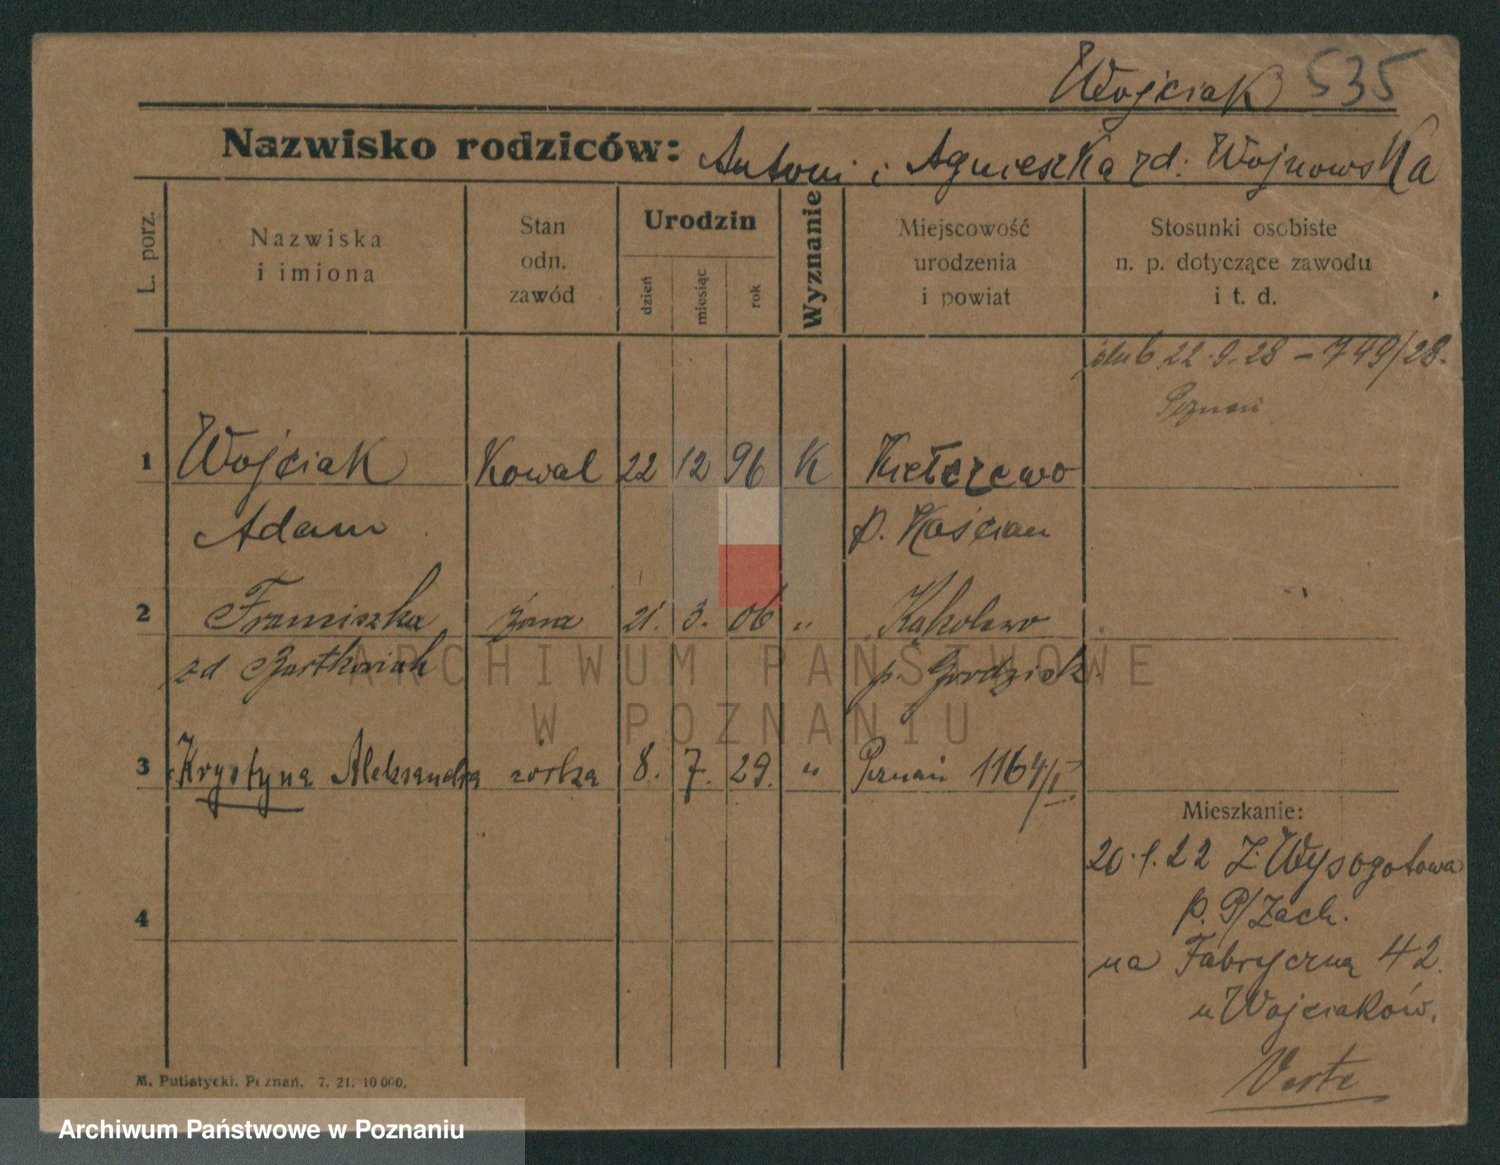 Wojciak 535
Nazwisko rodziców: Antoni i Agnieszka zd. Wojnowska
L. porz.
Nazwiska
i imiona
Stan
odn.
zawód
Urodzin
dzień
miesiąc
rok
Wyznanie
Miejscowość
urodzenia
i powiat
Stosunki osobiste
n. p. dotyczące zawodu
i t. d.
ślub 22.9.28 – 749/28.
Poznań
1 Wojciak Kowal 22 12 96 K Kiełczewo
Adam p. Kościan
2 Franciszka żona 21. 3. 06 " Kąkolewo
zd Bartkowiak p. Grodzisk
3 Krystyna Aleksandra córka 8. 7. 29. " Poznań 1164/I.
Mieszkanie:
20.1.22 Z Wysogotowa
4 p. P/Zach.
na Fabryczną 42.
u Wojciaków.
Verte
M. Putiatycki. Poznań. 7. 21. 10000.
ARCHIWUM PAŃSTWOWE
W POZNANIU
Archiwum Państwowe w Poznaniu